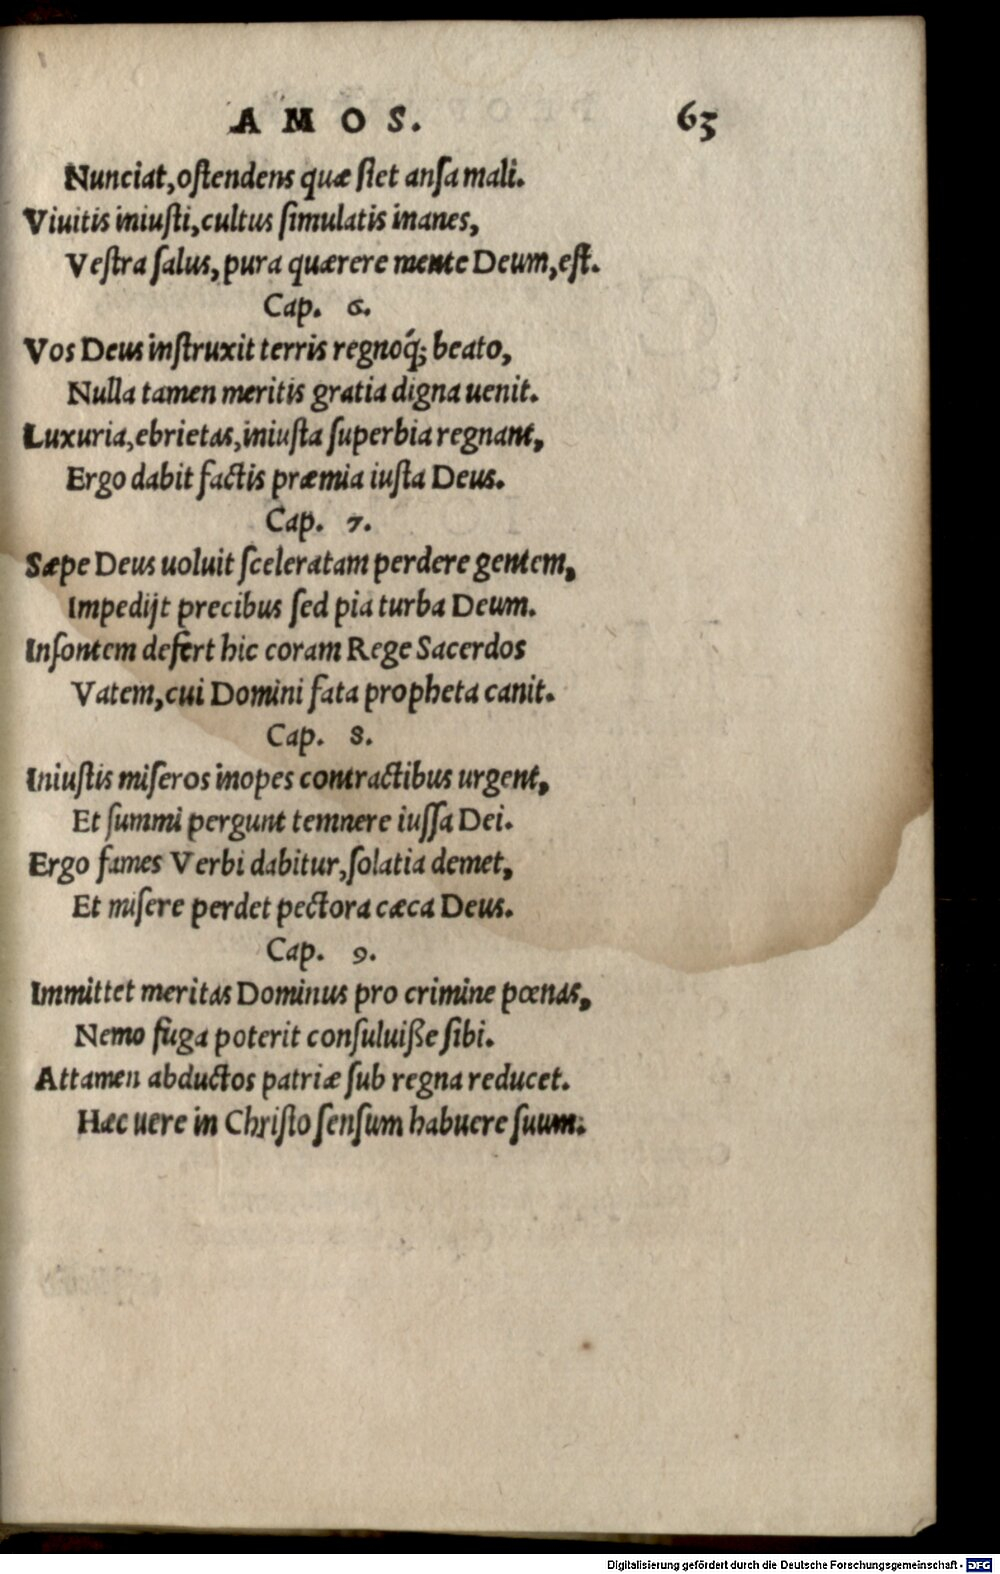 AMOS. 63
Nunciat, ostendens quæ siet ansa mali.
Viuitis iniusti, cultus simulatis inanes,
Vestra salus, pura quærere mente Deum, est.
Cap. 6.
Vos Deus instruxit terris regnoq́; beato,
Nulla tamen meritis gratia digna uenit.
Luxuria, ebrietas, iniusta superbia regnant,
Ergo dabit factis præmia iusta Deus.
Cap. 7.
Sæpe Deus uoluit sceleratam perdere gentem,
Impedijt precibus sed pia turba Deum.
Insontem defert hic coram Rege Sacerdos
Vatem, cui Domini fata propheta canit.
Cap. 8.
Iniustis miseros inopes contractibus urgent,
Et summi pergunt temnere iussa Dei.
Ergo fames Verbi dabitur, solatia demet,
Et misere perdet pectora cæca Deus.
Cap. 9.
Immittet meritas Dominus pro crimine pœnas,
Nemo fuga poterit consuluiße sibi.
Attamen abductos patriæ sub regna reducet.
Hæc uere in Christo sensum habuere suum.
Digitalisierung gefördert durch die Deutsche Forschungsgemeinschaft - DFG